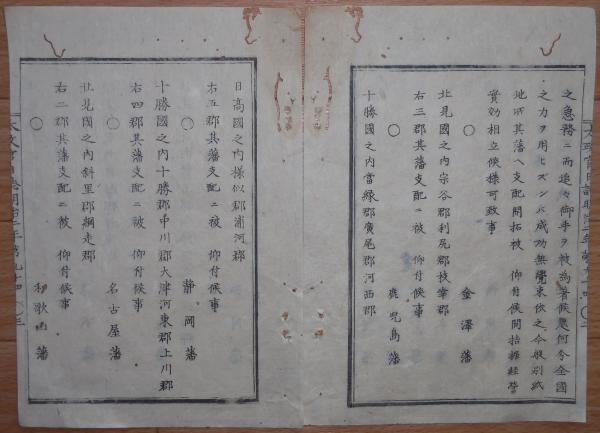 之急務ニ而追々御手ヲ被為着候處何分全國
之力ヲ用ヒズンバ成功無覺束依之今般別紙
地所其藩ヘ支配開拓被 仰付候間括据經營
實効相立候様可致事
金澤藩
○
北見國之内宗谷郡利尻郡枝幸郡
右三郡其藩支配ニ被 仰付候事
鹿児島藩
○
十勝國之内當縁郡廣尾郡河西郡
日高國之内様似郡浦河郡
右五郡其藩支配ニ被 仰付候事
静岡藩
○
十勝國之内十勝郡中川郡大津河東郡上川郡
右四郡其藩支配ニ被 仰付候事
名古屋藩
○
北見國之内斜里郡網走郡
右二郡其藩支配ニ被 仰付候事
和歌山藩
○